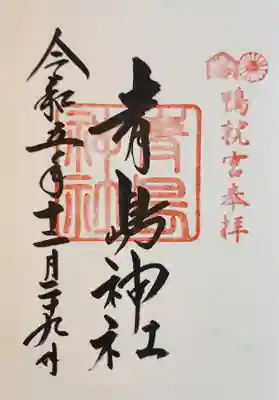 鴨就宮奉拝
青島神社
青島神社
令和五年十一月二十九日